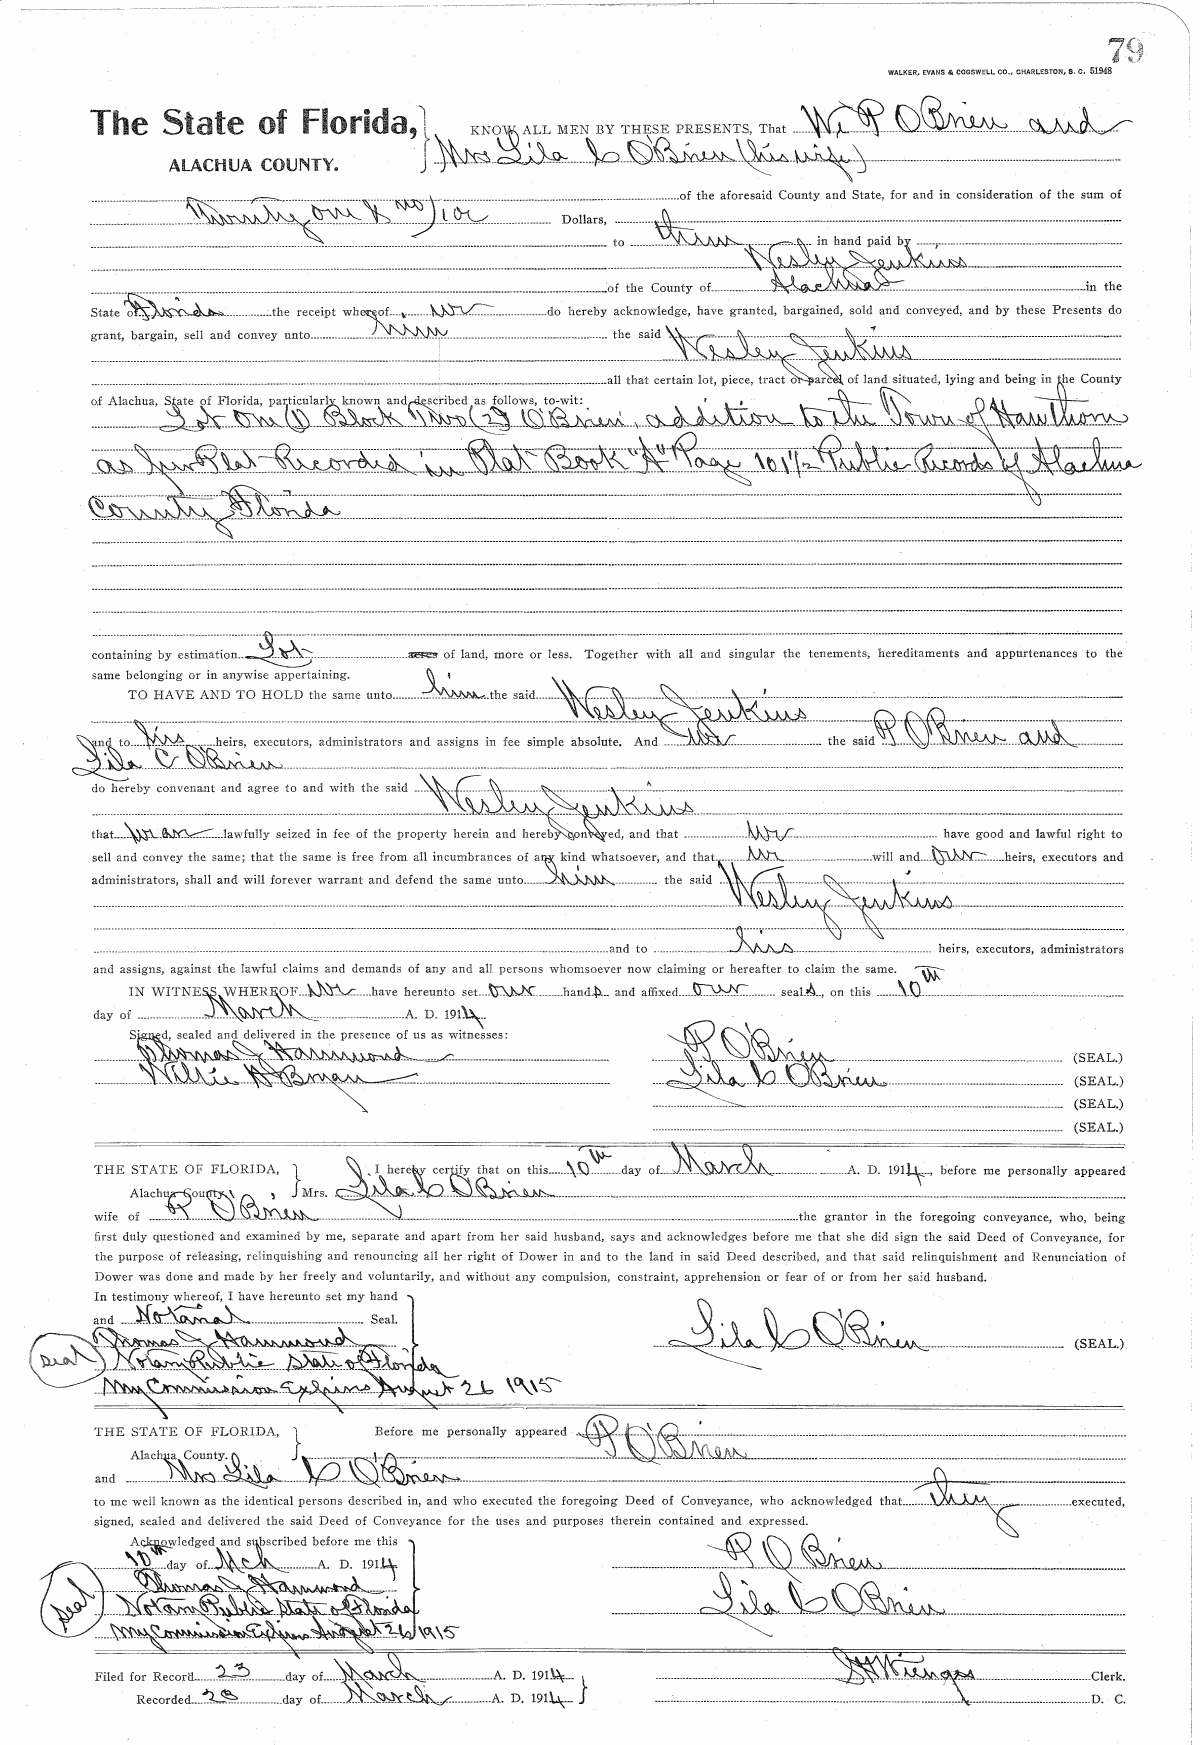 79
WALKER, EVANS & COGSWELL CO., CHARLESTON, S. C. 51948
The State of Florida, KNOW ALL MEN BY THESE PRESENTS, That We P O'Brien and
ALACHUA COUNTY. Mrs Lila C O'Brien (his wife)
of the aforesaid County and State, for and in consideration of the sum of
Twenty one & no/100 Dollars,
to them in hand paid by
Wesley Jenkins
of the County of Alachua in the
State of Florida the receipt whereof we do hereby acknowledge, have granted, bargained, sold and conveyed, and by these Presents do
grant, bargain, sell and convey unto him the said Wesley Jenkins
all that certain lot, piece, tract or parcel of land situated, lying and being in the County
of Alachua, State of Florida, particularly known and described as follows, to-wit:
Lot One (1) Block Two (2) O'Brien, addition to the Town of Hawthorn
as per Plat Recorded in Plat Book "A" Page 101½ Public Records of Alachua
County Florida
containing by estimation Lot acres of land, more or less. Together with all and singular the tenements, hereditaments and appurtenances to the
same belonging or in anywise appertaining.
TO HAVE AND TO HOLD the same unto him the said Wesley Jenkins
and to his heirs, executors, administrators and assigns in fee simple absolute. And we the said P O'Brien and
Lila C O'Brien
do hereby convenant and agree to and with the said Wesley Jenkins
that we are lawfully seized in fee of the property herein and hereby conveyed, and that we have good and lawful right to
sell and convey the same; that the same is free from all incumbrances of any kind whatsoever, and that we will and our heirs, executors and
administrators, shall and will forever warrant and defend the same unto him the said Wesley Jenkins
and to his heirs, executors, administrators
and assigns, against the lawful claims and demands of any and all persons whomsoever now claiming or hereafter to claim the same.
IN WITNESS WHEREOF We have hereunto set our hands and affixed our seals, on this 10th
day of March A. D. 1914.
Signed, sealed and delivered in the presence of us as witnesses:
Thomas J Hammond P O'Brien (SEAL.)
Willie Lila C O'Brien (SEAL.)
(SEAL.)
(SEAL.)
THE STATE OF FLORIDA, I hereby certify that on this 10th day of March A. D. 1914, before me personally appeared
Alachua County, Mrs. Lila C O'Brien
wife of P O'Brien the grantor in the foregoing conveyance, who, being
first duly questioned and examined by me, separate and apart from her said husband, says and acknowledges before me that she did sign the said Deed of Conveyance, for
the purpose of releasing, relinquishing and renouncing all her right of Dower in and to the land in said Deed described, and that said relinquishment and Renunciation of
Dower was done and made by her freely and voluntarily, and without any compulsion, constraint, apprehension or fear of or from her said husband.
In testimony whereof, I have hereunto set my hand
and Notarial Seal.
Thomas J Hammond Lila C O'Brien (SEAL.)
seal Notary Public State of Florida
My Commission Expires August 26 1915
THE STATE OF FLORIDA, Before me personally appeared P O'Brien
Alachua County.
and Mrs Lila C O'Brien
to me well known as the identical persons described in, and who executed the foregoing Deed of Conveyance, who acknowledged that they executed,
signed, sealed and delivered the said Deed of Conveyance for the uses and purposes therein contained and expressed.
Acknowledged and subscribed before me this
10th day of Mch A. D. 1914 P O'Brien
Thomas J Hammond
seal Notary Public State of Florida Lila C O'Brien
My Commission Expires August 26 1915
Filed for Record 23 day of March A. D. 1914 S H Wienges Clerk.
Recorded 28 day of March A. D. 1914 D. C.